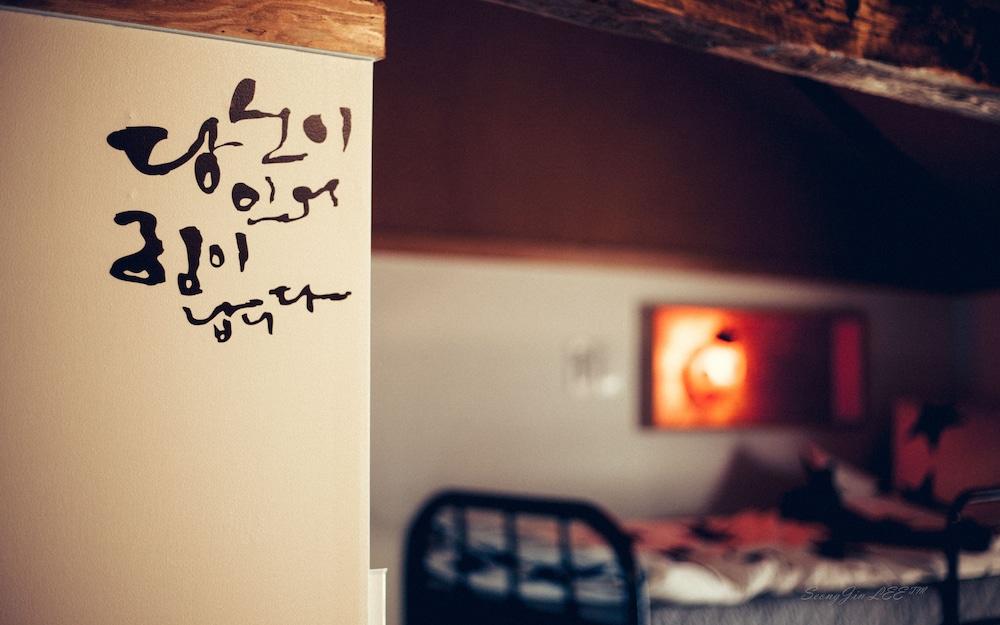 당신이
있어
힘이
납니다
SeongJin LEE™